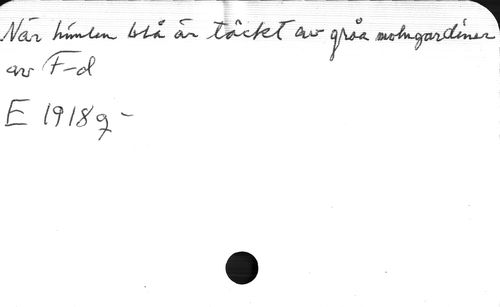 När himlen blå är täckt av gråa molngardiner
av F-d
E 1918 g -